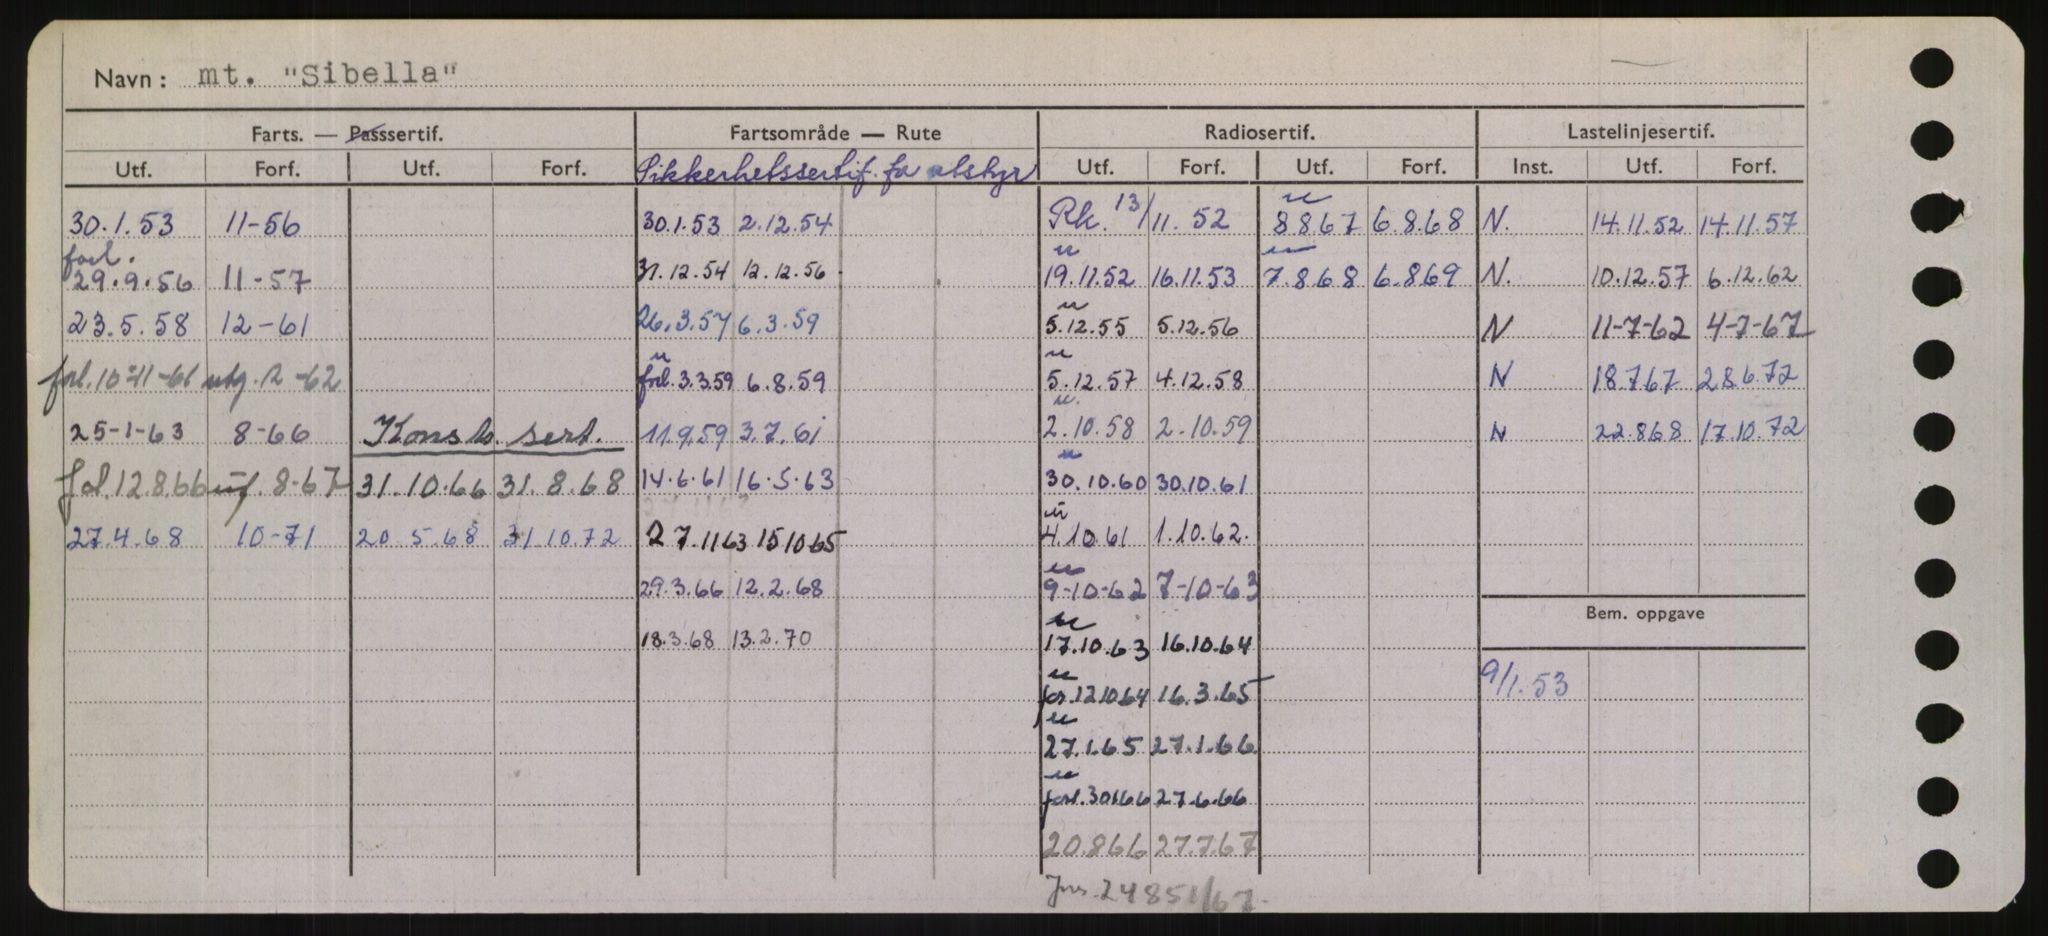 Navn: mt. "Sibella"
Farts. — Passsertif. Fartsområde — Rute Radiosertif. Lastelinjesertif.
Utf. Forf. Utf. Forf. Sikkerhetssertif. for utstyr Utf. Forf. Utf. Forf. Inst. Utf. Forf.
30.1.53 11-56 30.1.53 2.12.54 Rk. 13/11.52 u 8.8.67 6.8.68 N. 14.11.52 14.11.57
forl. 29.9.56 11-57 31.12.54 12.12.56 u 19.11.52 16.11.53 u 7.8.68 6.8.69 N. 10.12.57 6.12.62
23.5.58 12-61 26.3.57 6.3.59 u 5.12.55 5.12.56 N 11-7-62 4-7-67
forl. 10-11-61 utg. 2-62 u forl. 3.3.59 6.8.59 u 5.12.57 4.12.58 N 18.7.67 28.6.72
25-1-63 8-66 Konstr. sert. 11.9.59 3.7.61 u. 2.10.58 2.10.59 N 22.8.68 17.10.72
12.8.66 8-67 31.10.66 31.8.68 14.6.61 16.5.63 u 30.10.60 30.10.61
27.4.68 10-71 20.5.68 31.10.72 27.11 63 15 10 65 u 4.10.61 1.10.62.
29.3.66 12.2.68 u 9-10-62 7-10-63
Bem. oppgave
18.3.68 13.2.70 u 17.10.63 16.10.64
u for. 12.10.64 16.3.65 9/1.53
u 27.1.65 27.1.66
u forl. 30.1.66 27.6.66
20.8.66 27.7.67
Jnr. 24851/67.